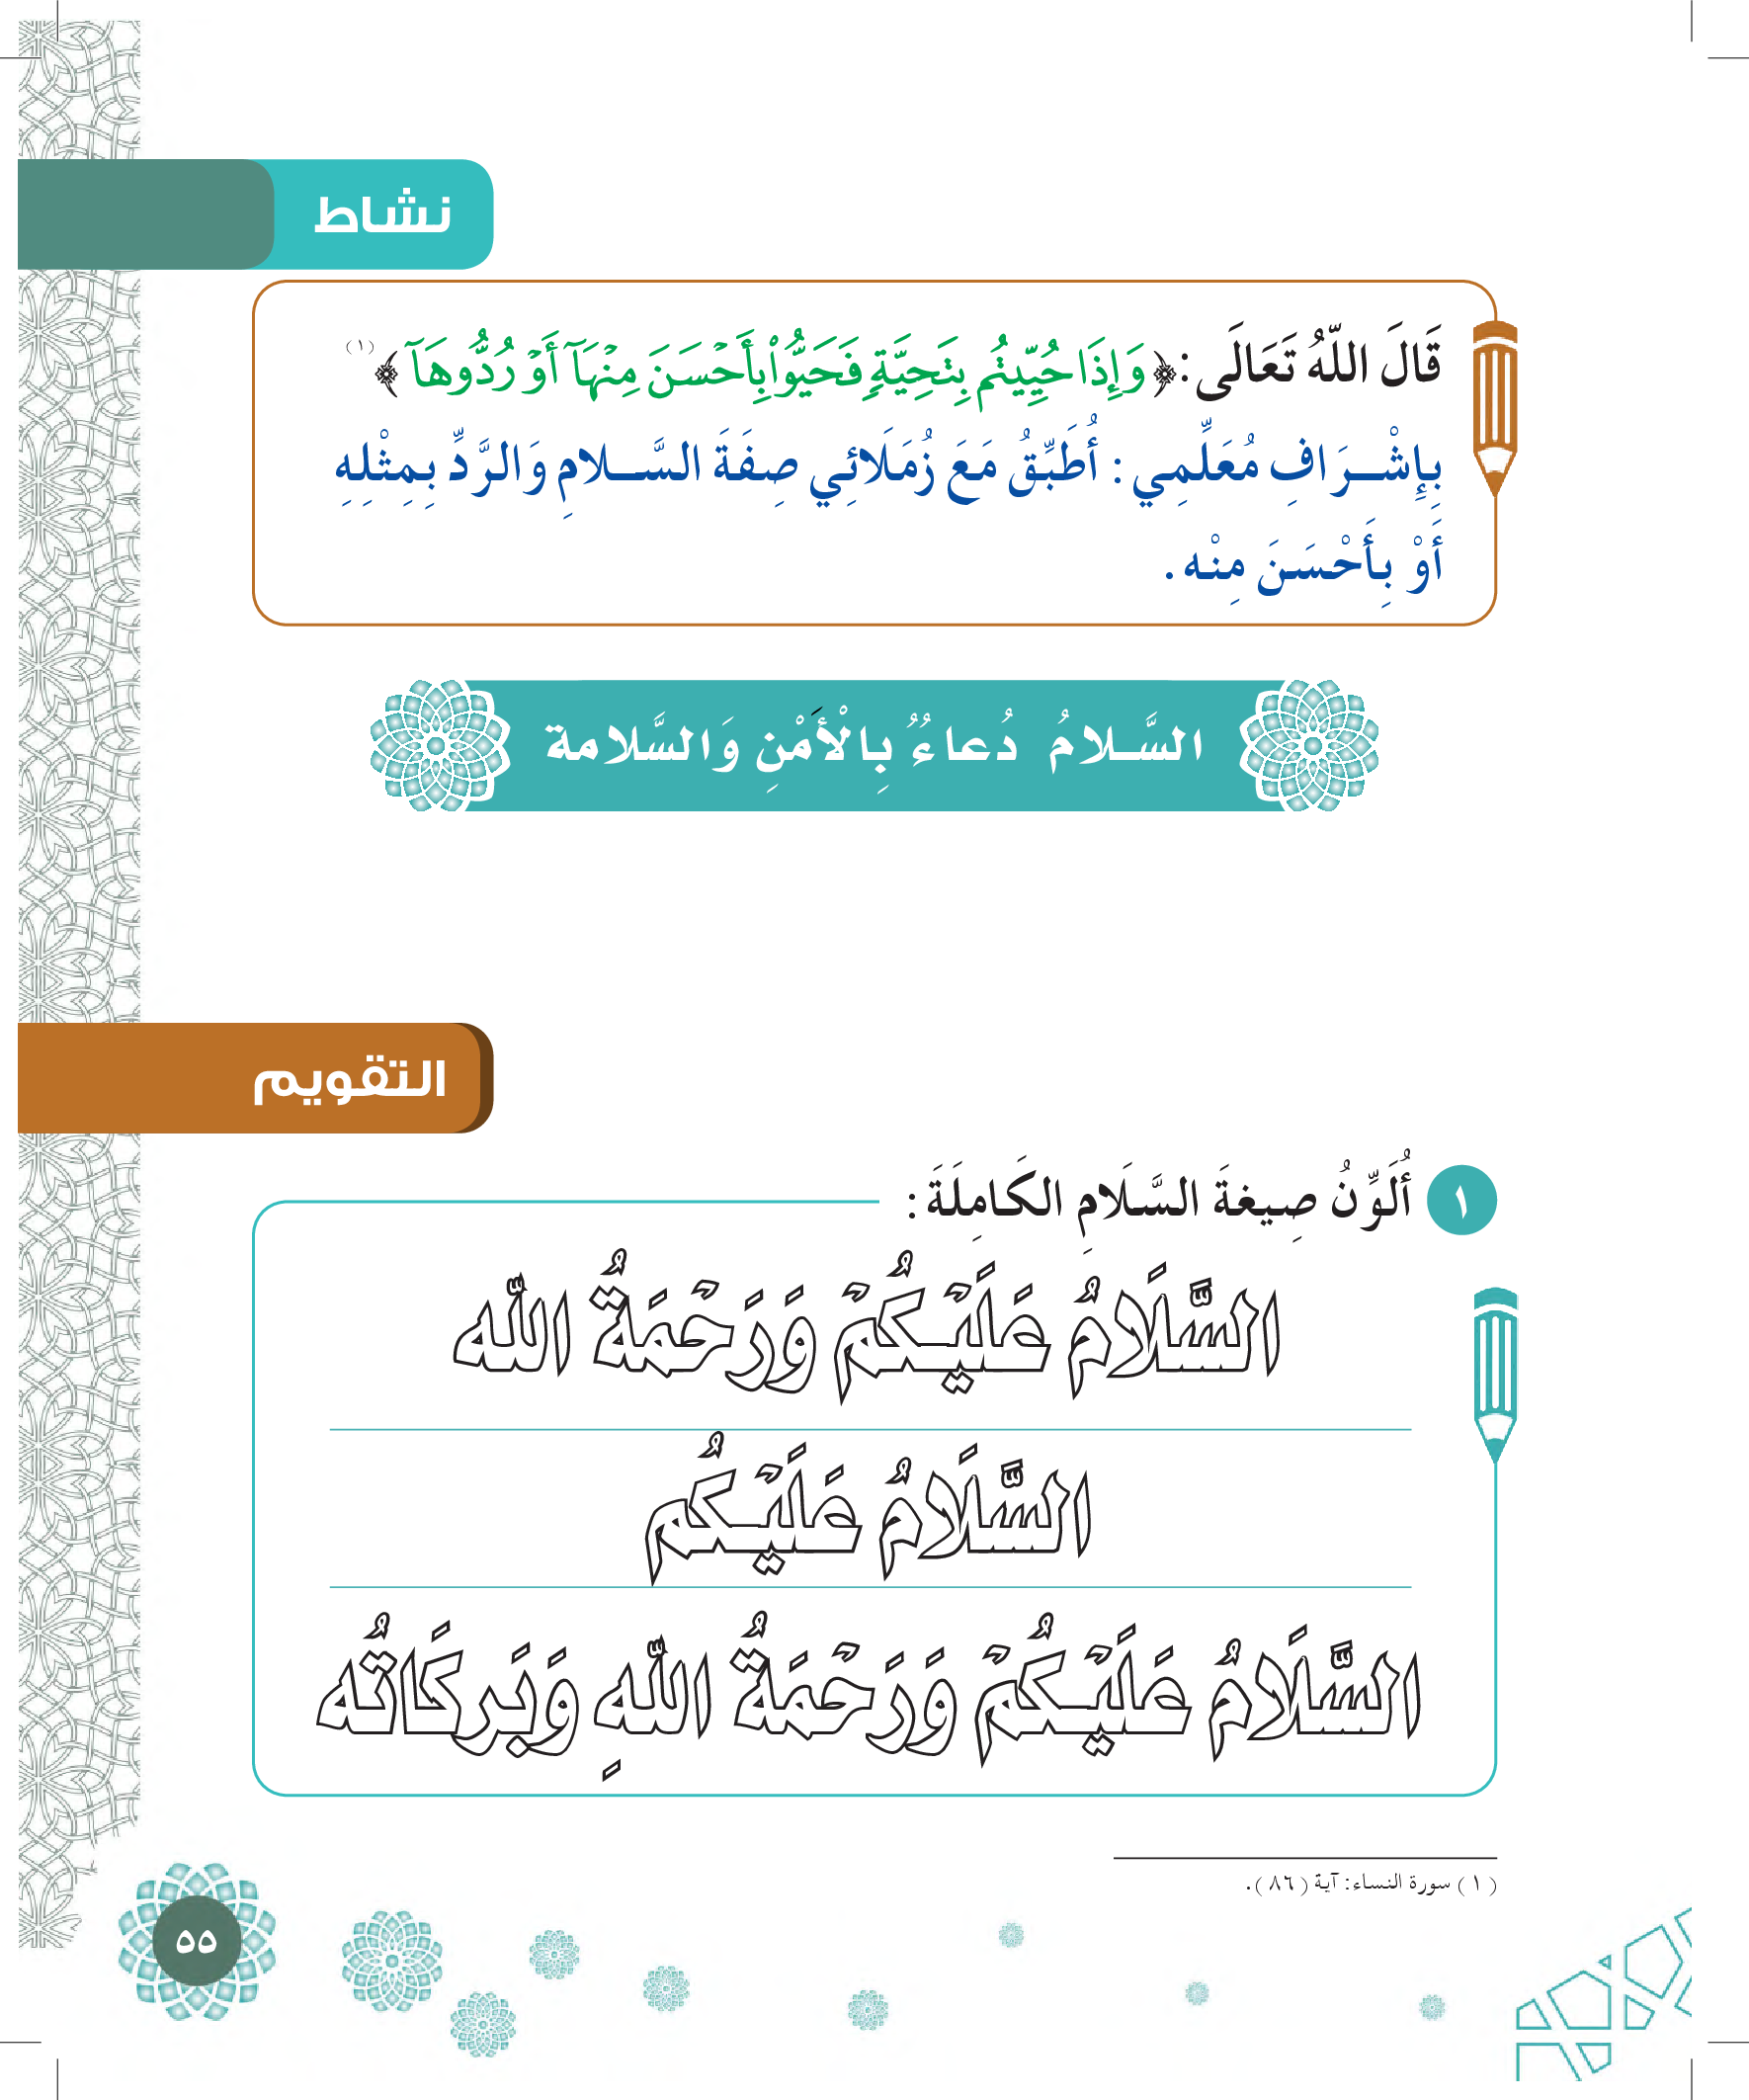 نشاط
قَالَ اللّٰهُ تَعَالَى: ﴿ وَإِذَا حُيِّيتُم بِتَحِيَّةٍ فَحَيُّوا۟ بِأَحْسَنَ مِنْهَآ أَوْ رُدُّوهَآ ﴾ (١)
بِإِشْــرَافِ مُعَلِّمِي : أُطَبِّقُ مَعَ زُمَلَائِي صِفَةَ السَّــلامِ وَالرَّدِّ بِمِثْلِهِ
أَوْ بِأَحْسَنَ مِنْه .
السَّـلامُ دُعاءُ بِالْأَمْنِ وَالسَّلامة
التقويم
١ أُلَوِّنُ صِيغةَ السَّلَامِ الكَامِلَةَ :
السَّلَامُ عَلَيْـكُمْ وَرَحْمَةُ اللّٰه
السَّلَامُ عَلَيْـكُم
السَّلَامُ عَلَيْـكُمْ وَرَحْمَةُ اللّٰهِ وَبَركَاتُه
(١) سورة النساء: آية (٨٦).
٥٥